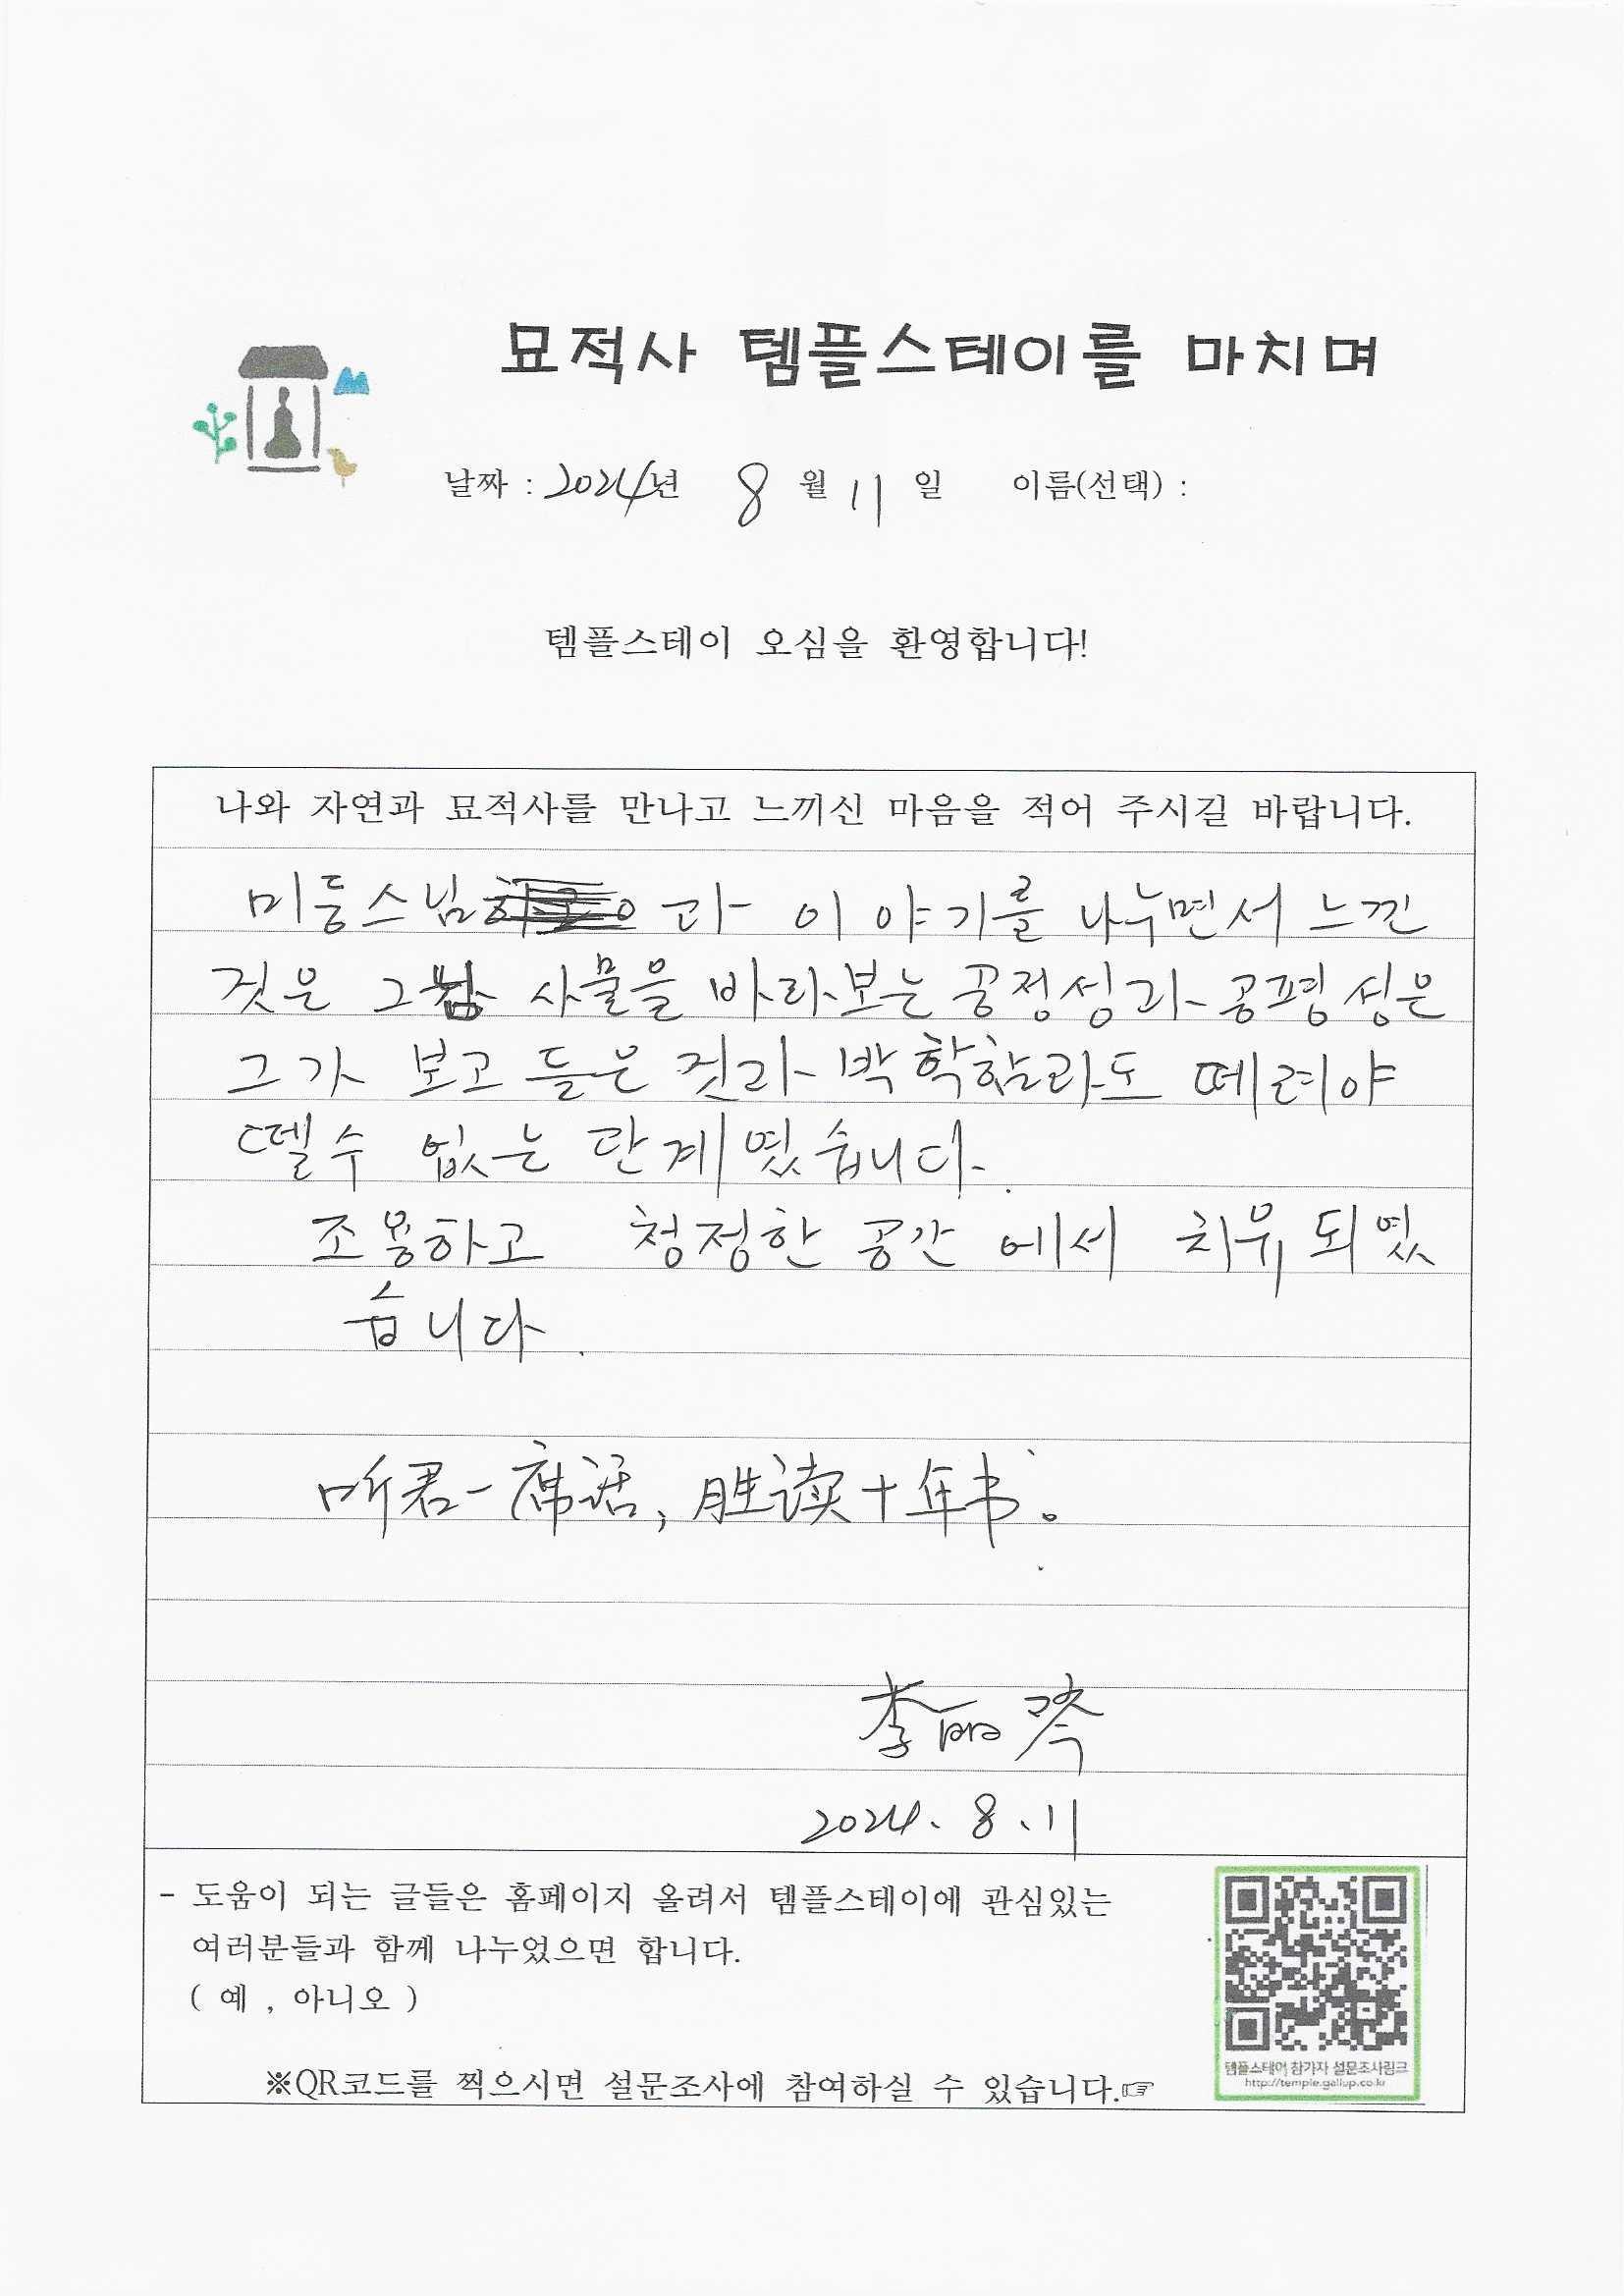 묘적사 템플스테이를 마치며
날짜 : 2024년 8월 11일 이름(선택) :
템플스테이 오심을 환영합니다!
나와 자연과 묘적사를 만나고 느끼신 마음을 적어 주시길 바랍니다.
미등스님과 이야기를 나누면서 느낀
것은 그 사물을 바라보는 공정성과 공평성은
그가 보고 들은 것과 박학함과도 떼려야
뗄수 없는 단계였습니다.
조용하고 청정한 공간에서 치유되였
습니다.
听君一席话,胜读十年书。
李丽琴
2024.8.11
- 도움이 되는 글들은 홈페이지 올려서 템플스테이에 관심있는
여러분들과 함께 나누었으면 합니다.
( 예 , 아니오 )
※QR코드를 찍으시면 설문조사에 참여하실 수 있습니다.☞
템플스테이 참가자 설문조사링크
http://temple.gallup.co.kr